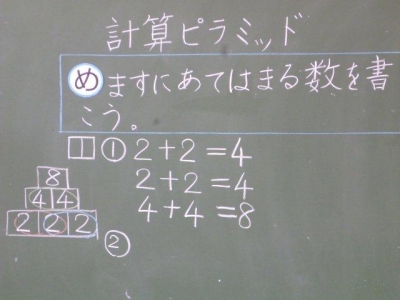 計算ピラミッド
めますにあてはまる数を書
こう。
1 ① 2+2=4
2+2=4
4+4=8
8
4 4
2 2 2
②